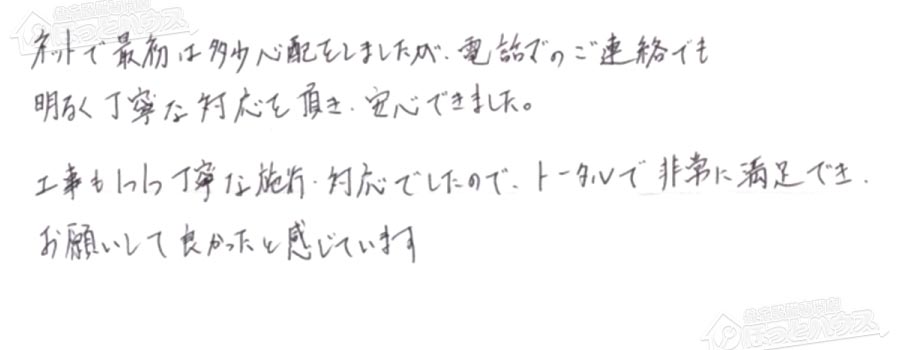 ネットで最初は多少心配をしましたが、電話でのご連絡でも
明るく丁寧な対応を頂き、安心できました。
工事も1つ1つ丁寧な施行・対応でしたので、トータルで非常に満足でき、
お願いして良かったと感じています
ほっとハウス
ほっとハウス